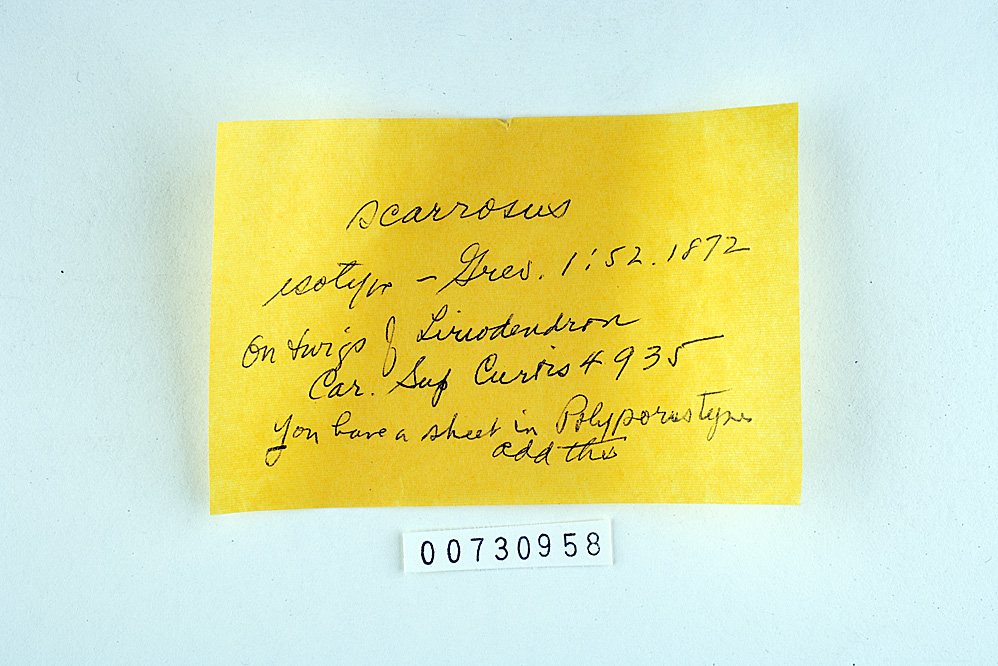 scarrosus
isotype - Grev. 1:52.1872
On twigs of Liriodendron
Car. Sup Curtis 4935
You have a sheet in Polyporus types
add this
00730958